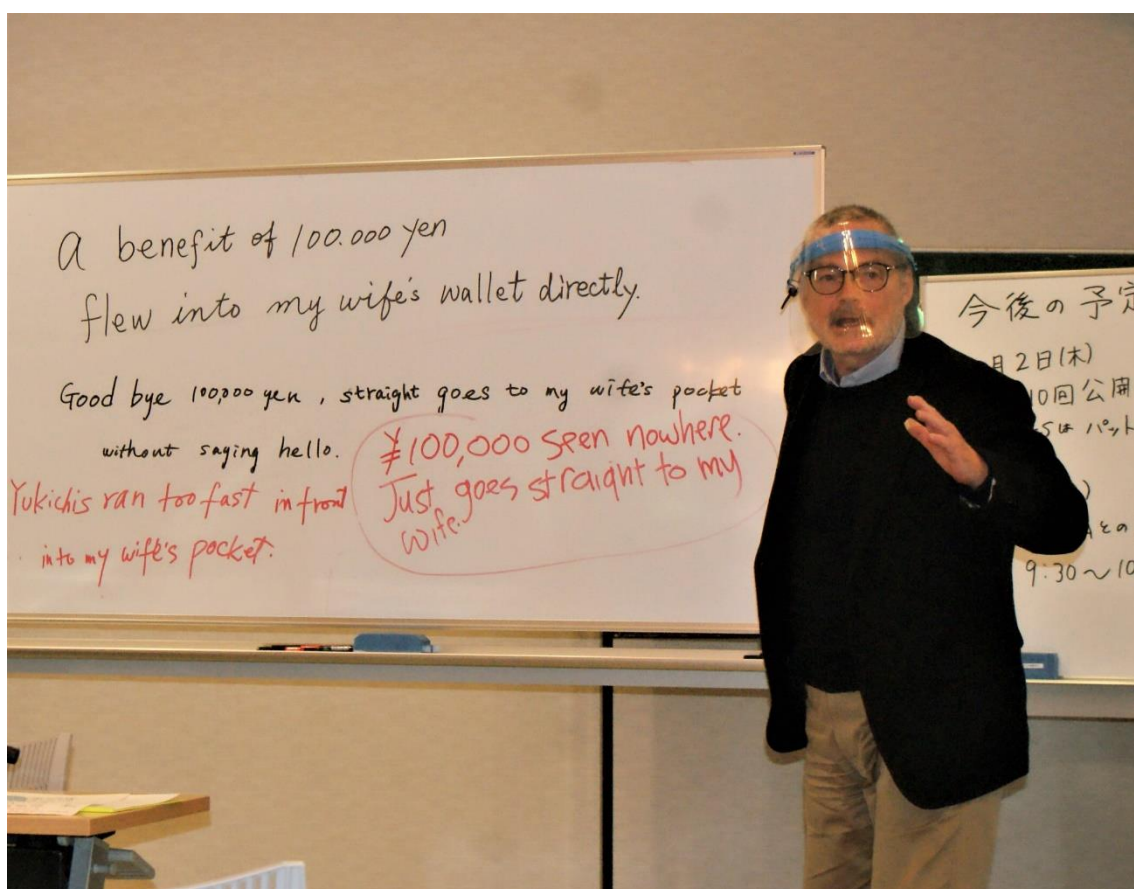 A benefit of 100.000 yen
flew into my wife's wallet directly.
Good bye 100,000 yen, straight goes to my wife's pocket
without saying hello.
Yukichis ran too fast in front
into my wife's pocket.
¥100,000 seen nowhere.
Just goes straight to my
wife.
今後の予定
月2日(木)
10回公開
は パット
との
9:30〜10